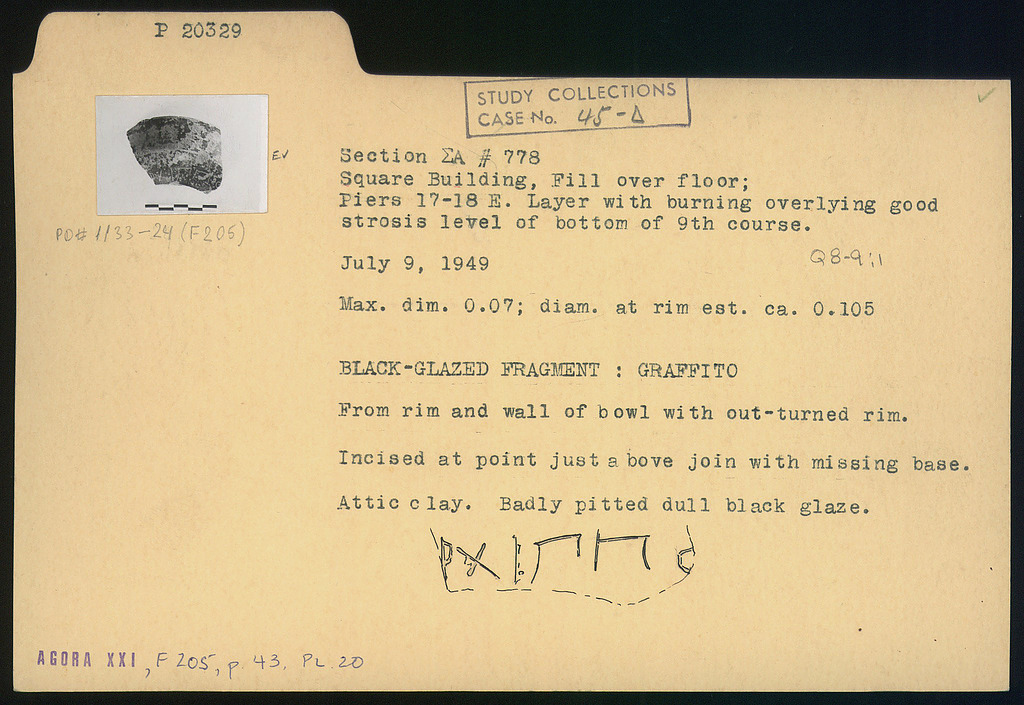 P 20329
STUDY COLLECTIONS
CASE No. 45-Δ
EV
PD# 1133-24 (F205)
Section ΣΑ # 778
Square Building, Fill over floor;
Piers 17-18 E. Layer with burning overlying good
strosis level of bottom of 9th course.
July 9, 1949
Q8-9:1
Max. dim. 0.07; diam. at rim est. ca. 0.105
BLACK-GLAZED FRAGMENT : GRAFFITO
From rim and wall of bowl with out-turned rim.
Incised at point just above join with missing base.
Attic clay. Badly pitted dull black glaze.
AGORA XXI, F 205, p. 43. PL. 20